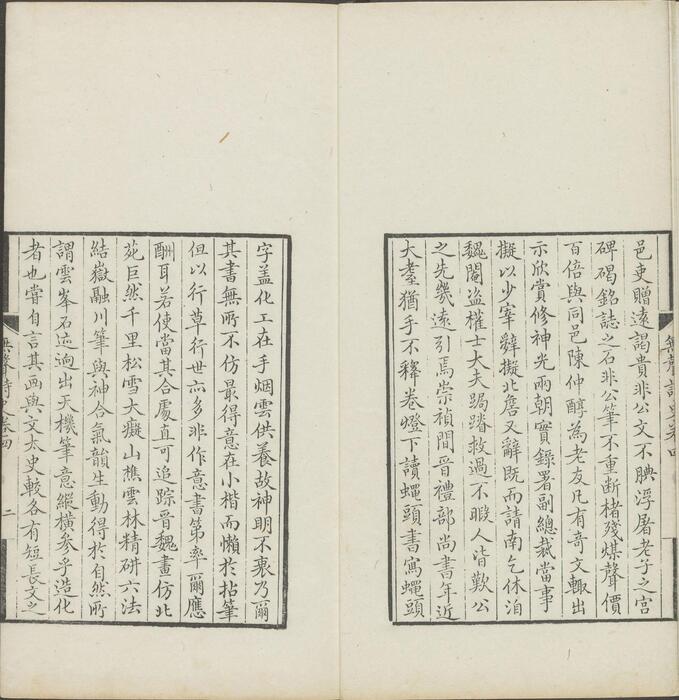 邑吏贈遠謁貴非公文不腆浮屠老子之宮
碑碣銘誌之石非公筆不重斷楮殘煤聲價
百倍與同邑陳仲醇為老友凡有奇文輙出
示欣賞修神光兩朝實錄署副總裁當事
擬以少宰辭擬北詹又辭既而請南乞休洎
魏閹盜權士大夫跼蹐救過不暇人皆歎公
之先幾遠引焉崇禎間晉禮部尚書年近
大耋猶手不釋卷燈下讀蠅頭書寫蠅頭
字盖化工在手烟雲供養故神明不衰乃爾
其書無所不仿最得意在小楷而懶於拈筆
但以行草行世亦多非作意書第率爾應
酬耳若使當其合處直可追踪晉魏畫仿北
苑巨然千里松雪大癡山樵雲林精研六法
結嶽融川筆與神合氣韻生動得於自然所
謂雲峯石迹迥出天機筆意縱橫參乎造化
者也嘗自言其画與文太史較各有短長文之
無聲詩史卷四
二